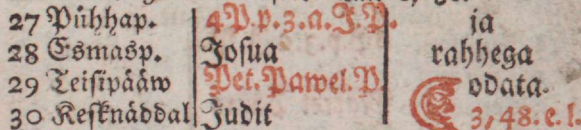 27 Pühhap. 4 P. p. 3. a. J. P. ja
28 Esmasp. Josua rahhega
29 Teisipääw Pet. Pawel. P. odata.
30 Kesknäddal Judit 3, 48. e. l.